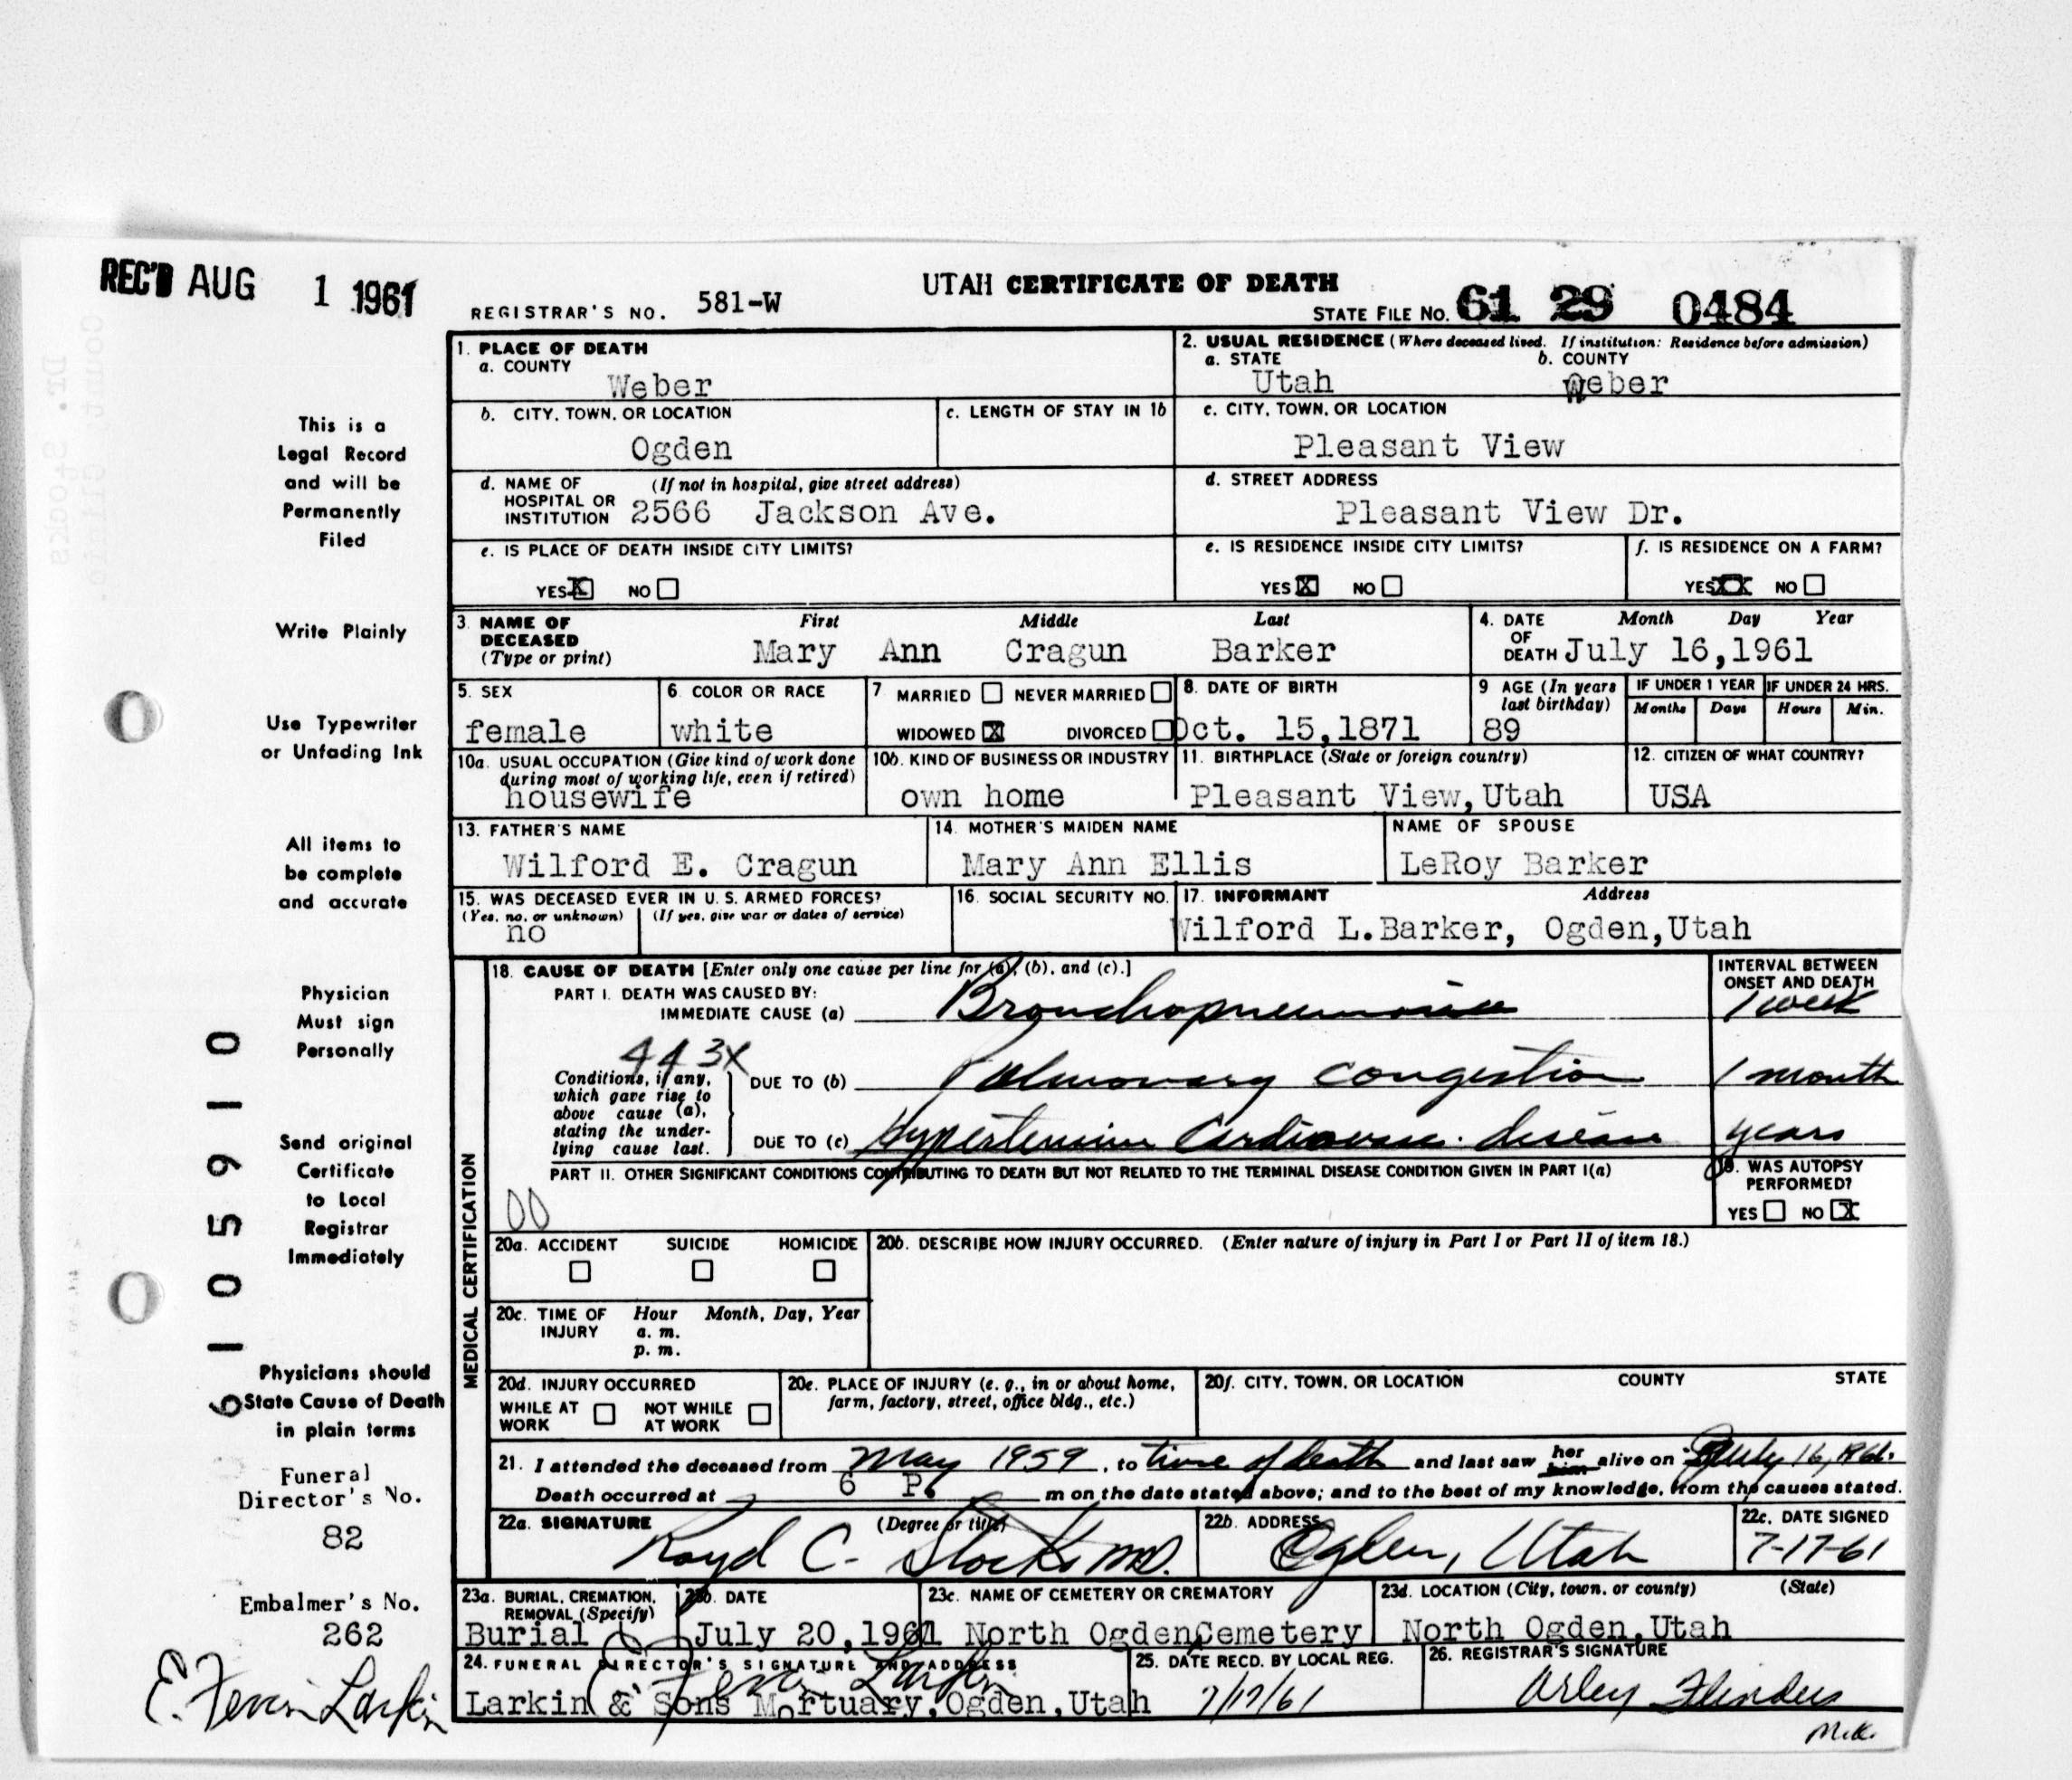 REC'D AUG 1 1961
UTAH CERTIFICATE OF DEATH
REGISTRAR'S NO. 581-W
STATE FILE NO. 61 29 0484
1. PLACE OF DEATH
a. COUNTY
Weber
2. USUAL RESIDENCE (Where deceased lived. If institution: Residence before admission)
a. STATE b. COUNTY
Utah Weber
b. CITY, TOWN, OR LOCATION
Ogden
c. LENGTH OF STAY IN 1b
c. CITY, TOWN, OR LOCATION
Pleasant View
d. NAME OF (If not in hospital, give street address)
HOSPITAL OR
INSTITUTION 2566 Jackson Ave.
d. STREET ADDRESS
Pleasant View Dr.
e. IS PLACE OF DEATH INSIDE CITY LIMITS?
YES X NO
e. IS RESIDENCE INSIDE CITY LIMITS?
YES X NO
f. IS RESIDENCE ON A FARM?
YES XX NO
3. NAME OF DECEASED (Type or print)
First Middle Last
Mary Ann Cragun Barker
4. DATE OF DEATH Month Day Year
July 16,1961
5. SEX
female
6. COLOR OR RACE
white
7 MARRIED NEVER MARRIED
WIDOWED X DIVORCED
8. DATE OF BIRTH
Oct. 15,1871
9 AGE (In years last birthday)
89
IF UNDER 1 YEAR IF UNDER 24 HRS.
Months Days Hours Min.
10a. USUAL OCCUPATION (Give kind of work done
during most of working life, even if retired)
housewife
10b. KIND OF BUSINESS OR INDUSTRY
own home
11. BIRTHPLACE (State or foreign country)
Pleasant View,Utah
12. CITIZEN OF WHAT COUNTRY?
USA
13. FATHER'S NAME
Wilford E. Cragun
14. MOTHER'S MAIDEN NAME
Mary Ann Ellis
NAME OF SPOUSE
LeRoy Barker
15. WAS DECEASED EVER IN U. S. ARMED FORCES?
(Yes, no, or unknown) (If yes, give war or dates of service)
no
16. SOCIAL SECURITY NO.
17. INFORMANT Address
Wilford L.Barker, Ogden,Utah
MEDICAL CERTIFICATION
18. CAUSE OF DEATH [Enter only one cause per line for (a), (b), and (c).]
INTERVAL BETWEEN
ONSET AND DEATH
PART I. DEATH WAS CAUSED BY:
IMMEDIATE CAUSE (a) Bronchopneumonia 1 week
443X
Conditions, if any,
which gave rise to
above cause (a),
stating the under-
lying cause last.
DUE TO (b) Pulmonary congestion 1 month
DUE TO (c) Hypertensive Cardiovasc. disease years
PART II. OTHER SIGNIFICANT CONDITIONS CONTRIBUTING TO DEATH BUT NOT RELATED TO THE TERMINAL DISEASE CONDITION GIVEN IN PART I(a)
00
19. WAS AUTOPSY
PERFORMED?
YES NO X
20a. ACCIDENT SUICIDE HOMICIDE
20b. DESCRIBE HOW INJURY OCCURRED. (Enter nature of injury in Part I or Part II of item 18.)
20c. TIME OF INJURY Hour Month, Day, Year
a. m.
p. m.
20d. INJURY OCCURRED
WHILE AT WORK NOT WHILE AT WORK
20e. PLACE OF INJURY (e. g., in or about home,
farm, factory, street, office bldg., etc.)
20f. CITY, TOWN, OR LOCATION COUNTY STATE
21. I attended the deceased from May 1959, to time of death and last saw her him alive on July 16, 1961.
Death occurred at 6 P. m on the date stated above; and to the best of my knowledge, from the causes stated.
22a. SIGNATURE (Degree or title)
Royd C. Stocks MD.
22b. ADDRESS
Ogden, Utah
22c. DATE SIGNED
7-17-61
23a. BURIAL, CREMATION,
REMOVAL (Specify)
Burial
23b. DATE
July 20,1961
23c. NAME OF CEMETERY OR CREMATORY
North Ogden Cemetery
23d. LOCATION (City, town, or county) (State)
North Ogden,Utah
24. FUNERAL DIRECTOR'S SIGNATURE AND ADDRESS
E. Fevrin Larkin
Larkin & Sons Mortuary,Ogden,Utah
25. DATE RECD. BY LOCAL REG.
7/17/61
26. REGISTRAR'S SIGNATURE
Arley Flinders
M.K.
This is a
Legal Record
and will be
Permanently
Filed
Write Plainly
Use Typewriter
or Unfading Ink
All items to
be complete
and accurate
Physician
Must sign
Personally
Send original
Certificate
to Local
Registrar
Immediately
Physicians should
State Cause of Death
in plain terms
6105910
Funeral
Director's No.
82
Embalmer's No.
262
E. Fevrin Larkin